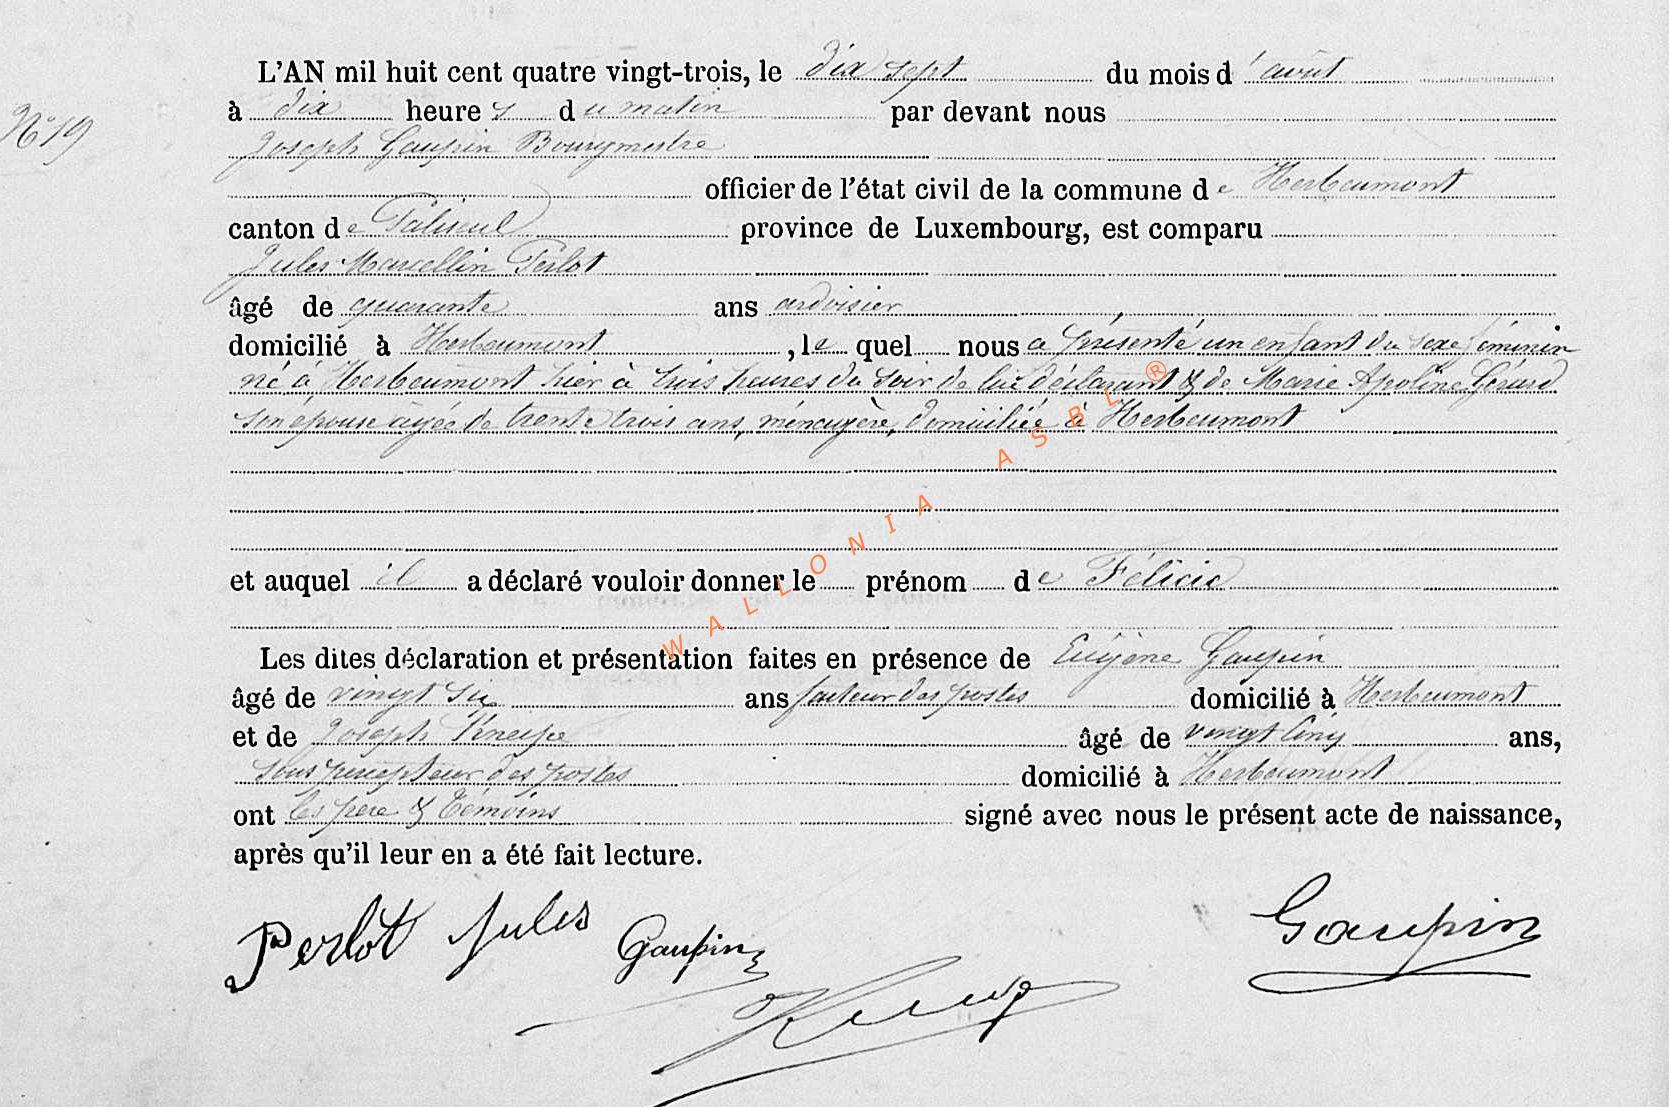 L'AN mil huit cent quatre vingt-trois, le dix sept du mois d'août
N° 19
à dix heures du matin par devant nous
Joseph Gaupin Bourgmestre
officier de l'état civil de la commune de Herbeumont
canton de Paliseul province de Luxembourg, est comparu
Jules Marcellin Perlot
âgé de quarante ans ardoisier
domicilié à Herbeumont, le quel nous a présenté un enfant du sexe féminin
né à Herbeumont hier à trois heures du soir de lui déclarant & de Marie Apoline Gérard
son épouse agée de trente trois ans, ménagère, domiciliée à Herbeumont
WALLONIA ASBL ®
et auquel il a déclaré vouloir donner le prénom de Félicie
Les dites déclaration et présentation faites en présence de Eugène Gaupin
âgé de vingt six ans facteur des postes domicilié à Herbeumont
et de Joseph âgé de vingt cinq ans,
sous percepteur des postes domicilié à Herbeumont
ont les père & témoins signé avec nous le présent acte de naissance,
après qu'il leur en a été fait lecture.
Perlot Jules Gaupin Gaupin